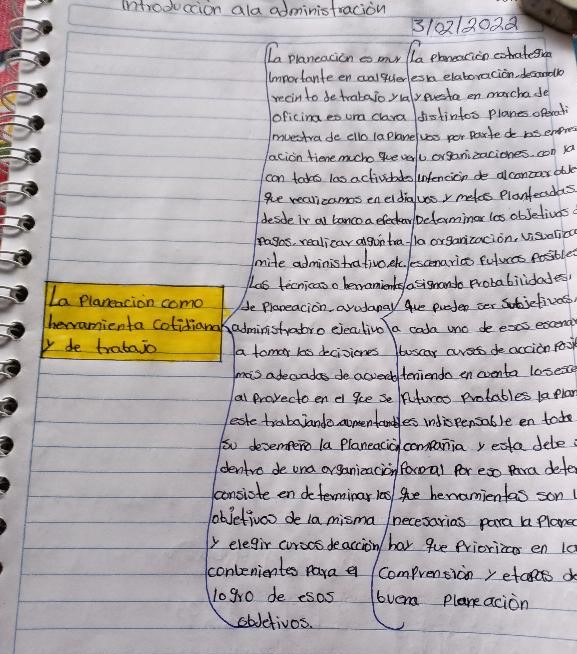 Introducción ala administración
3/02/2022
La Planeación como
herramienta cotidiana
y de trabajo
La planeación es muy
importante en cualquier
recinto de trabajo y la
oficina es una clara
muestra de ello la Plane
ación tiene mucho que ver
con todas las actividades
que realizamos en el día
desde ir al banco a efectuar
pagos, realizar algún tra-
mite administrativo, etc.
Las técnicas o herramientas
de Planeación, ayudan al
administrador o ejecutivo
a tomar las decisiones
mas adecuadas de acuerdo
al proyecto en el que se
este trabajando aumentando
su desempeño la Planeación
dentro de una organización
consiste en determinar los
objetivos de la misma
y elegir cursos de acción
convenientes para el
logro de esos
objetivos.
La planeación estrategica
es la elaboración, desarrollo
y puesta en marcha de
distintos Planes operati
vos por Parte de las empres
u organizaciones, con la
intención de alcanzar obje
vos y metas Planteadas.
Determinar los objetivos
la organización, visualiza
escenarios Futuros Posibles
asignando Probabilidades,
que pueden ser subjetivos,
a cada uno de esos escenar
buscar cursos de acción Posi
teniendo en cuenta los esce
Futuros Probables la Plan
es indispensable en toda
compañia y esta debe
Formal Por eso Para dete
que herramientas son
necesarias para la Planea
hay que Priorizar en la
comprensión y etapas de
buena planeación